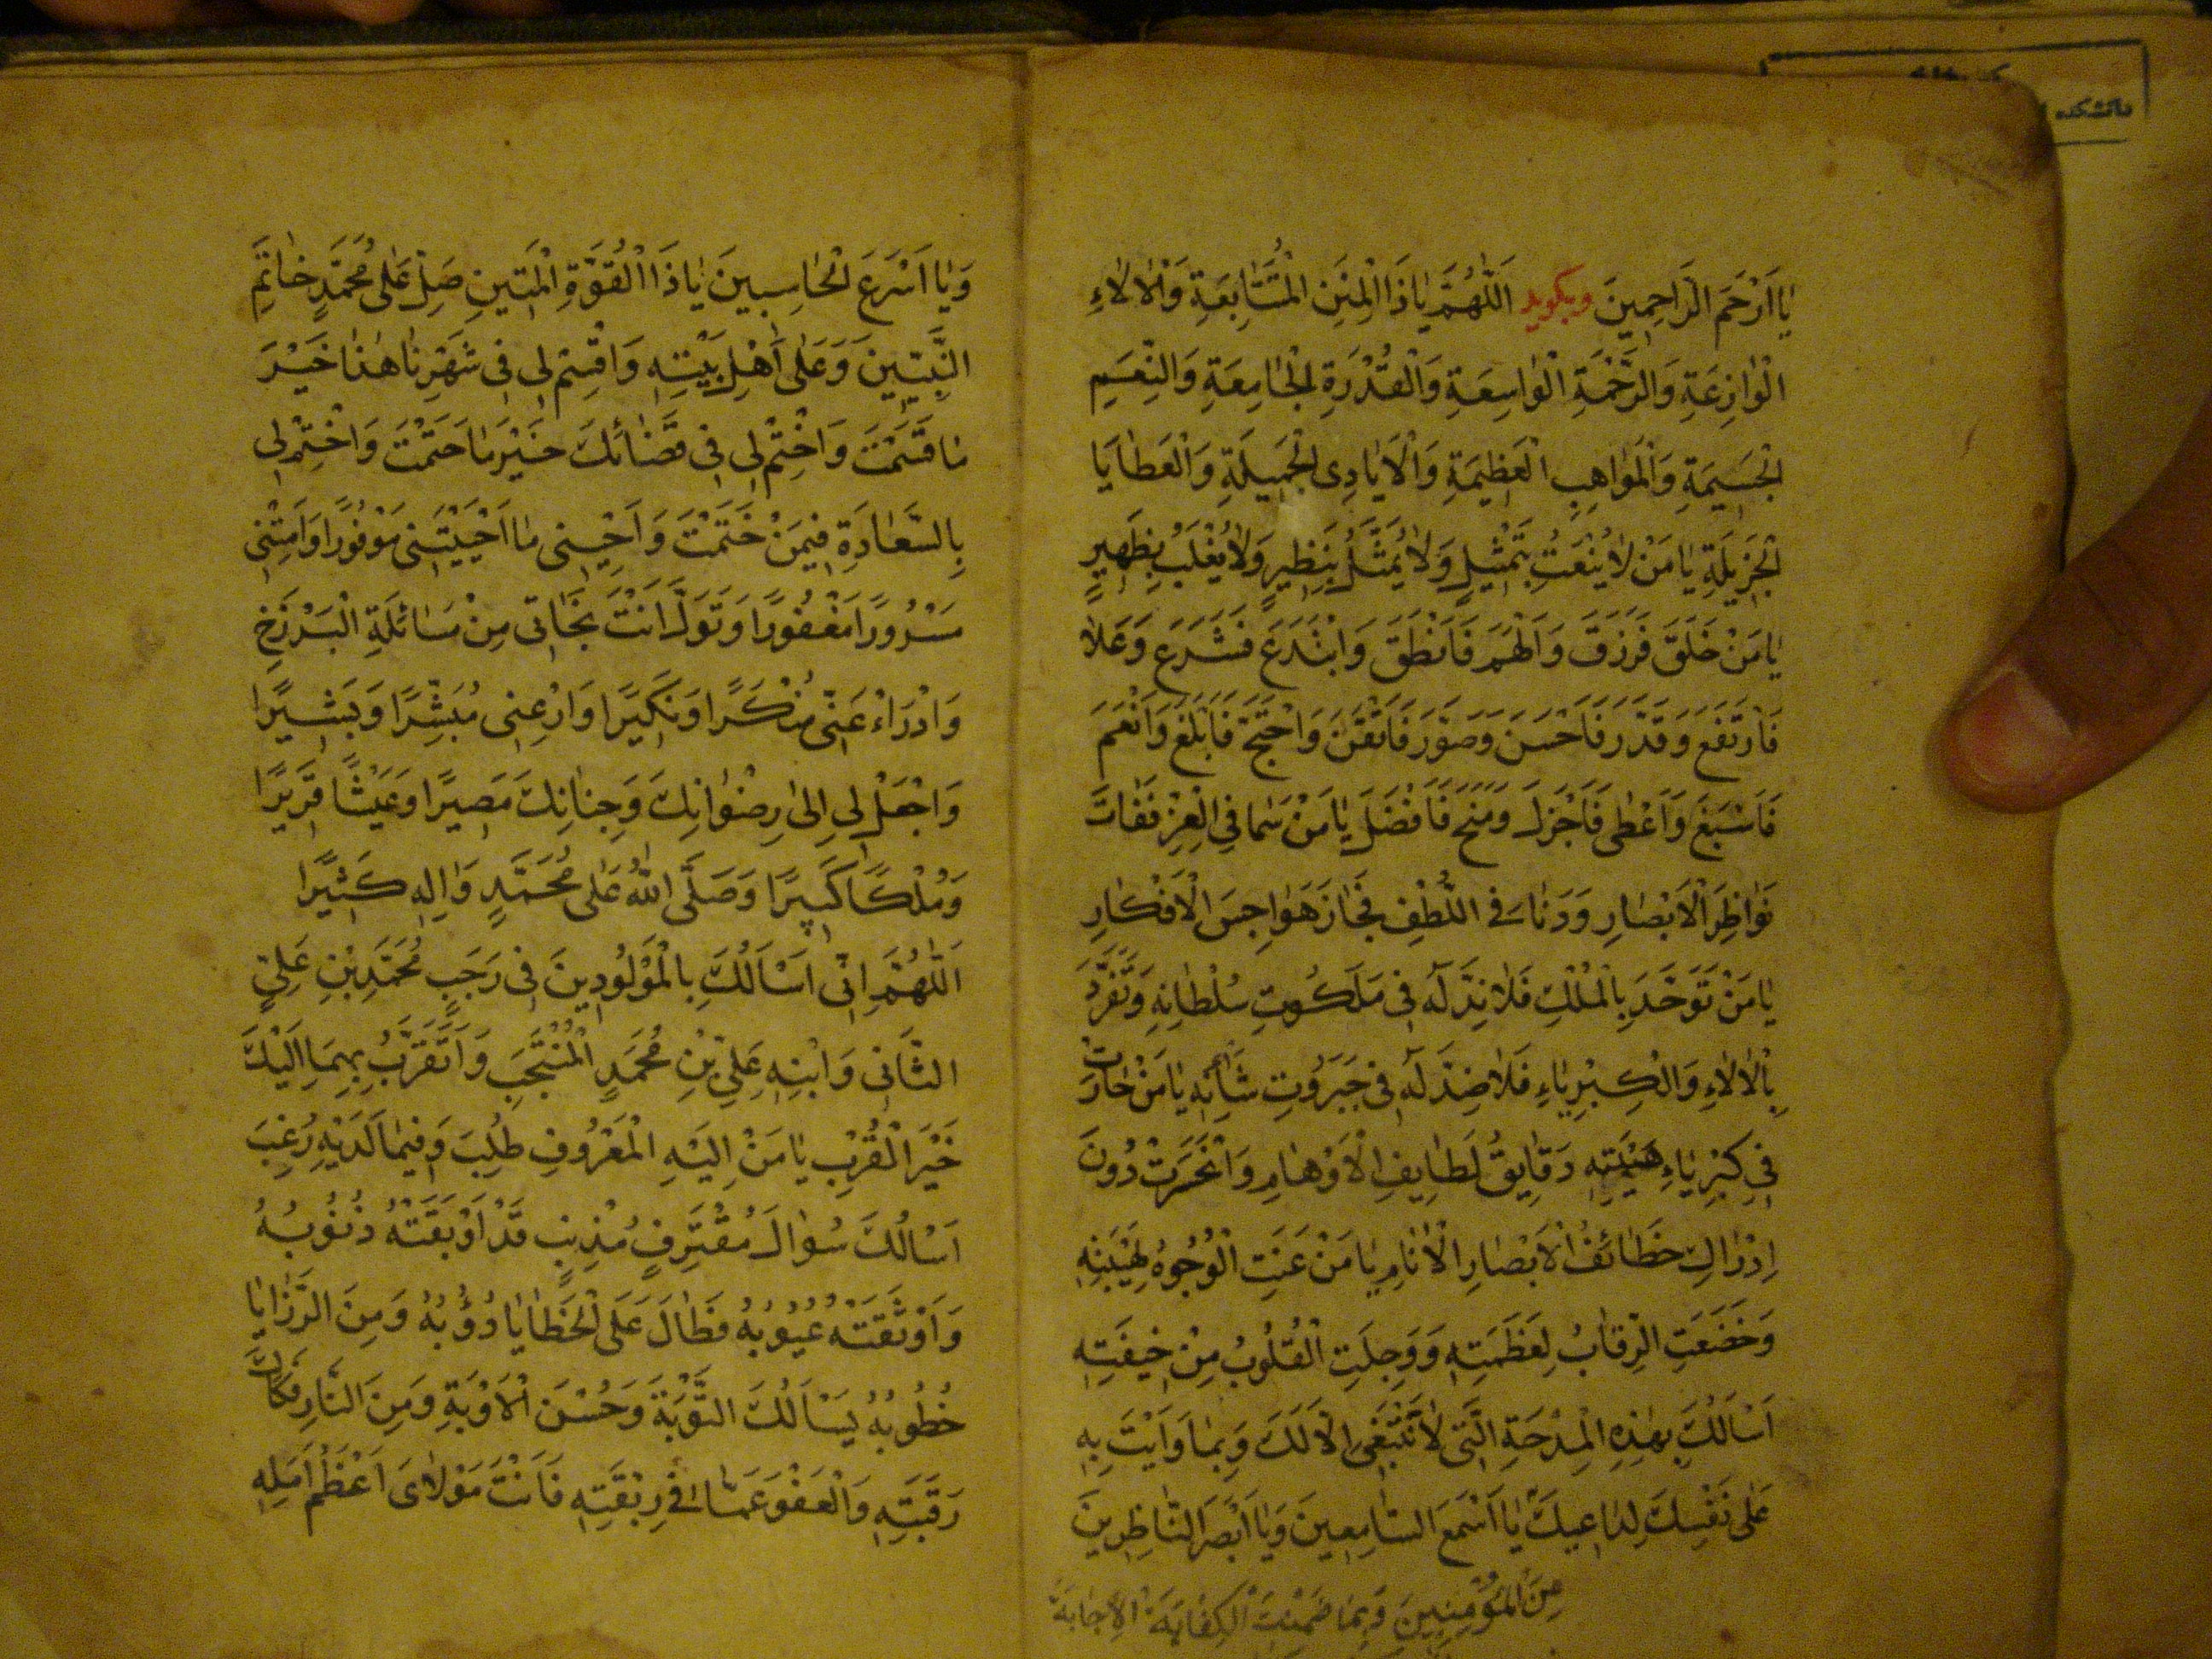 يا اَرْحَمَ الرّاحِمِينَ وبكويد اَللّهُمَّ يا ذَا الْمِنَنِ الْمُتَتابِعَةِ وَالْالاءِ
الْوازِعَةِ وَالرَّحْمَةِ الْواسِعَةِ وَالْقُدْرَةِ الْجامِعَةِ وَالنِّعَمِ
الْجَسيمَةِ وَالْمَواهِبِ الْعَظيمَةِ وَالْاَيادِى الْجَميلَةِ وَالْعَطايا
الْجَزيلَةِ يا مَنْ لايُنْعَتُ بِتَمْثيلٍ وَلا يُمَثَّلُ بِنَظيرٍ وَلا يُغْلَبُ بِظَهيرٍ
يا مَنْ خَلَقَ فَرَزَقَ وَاَلْهَمَ فَاَنْطَقَ وَابْتَدَعَ فَشَرَعَ وَعَلا
فَارْتَفَعَ وَقَدَّرَ فَاَحْسَنَ وَصَوَّرَ فَاَتْقَنَ وَاحْتَجَّ فَاَبْلَغَ وَاَنْعَمَ
فَاَسْبَغَ وَاَعْطى فَاَجْزَلَ وَمَنَحَ فَاَفْضَلَ يا مَنْ سَما فِى الْعِزِّ فَفاتَ
نَواظِرَ الْاَبْصارِ وَدَنا فِى اللُّطْفِ فَجازَ هَواجِسَ الْاَفْكارِ
يا مَنْ تَوَحَّدَ بِالْمُلْكِ فَلا نِدَّ لَهُ فى مَلَكُوتِ سُلْطانِهِ وَتَفَرَّدَ
بِالْالاءِ وَالْكِبْرِياءِ فَلا ضِدَّ لَهُ فى جَبَرُوتِ شَأْنِهِ يا مَنْ حارَتْ
فى كِبْرِياءِ هَيْبَتِهِ دَقايِقُ لَطايِفِ الْاَوْهامِ وَانْحَسَرَتْ دُونَ
اِدْراكِ خَطائِفُ الْاَبْصارِ الْاَنامِ يا مَنْ عَنَتِ الْوُجُوهُ لِهَيْبَتِهِ
وَخَضَعَتِ الرِّقابُ لِعَظَمَتِهِ وَوَجِلَتِ الْقُلُوبُ مِنْ خيفَتِهِ
اَسْاَلُكَ بِهذِهِ الْمِدْحَةِ الَّتى لا تَنْبَغى اِلاّ لَكَ وَبِما وَاَيْتَ بِهِ
عَلى نَفْسِكَ لِداعيكَ يا اَسْمَعَ السّامِعينَ وَيا اَبْصَرَ النّاظِرينَ
مِنَ الْمُؤْمِنينَ وَبِما ضَمِنْتَ الْكِفايَةَ الْاِجابَةَ
وَيا اَسْرَعَ الْحاسِبينَ يا ذَا الْقُوَّةِ الْمَتينِ صَلِّ عَلى مُحَمَّدٍ خاتَمِ
النَّبِيّينَ وَعَلى اَهْلِ بَيْتِهِ وَاقْسِمْ لى فى شَهْرِنا هذا خَيْرَ
ما قَسَمْتَ وَاخْتِمْ لى فى قَضائِكَ خَيْرَ ما حَتَمْتَ وَاخْتِمْ لى
بِالسَّعادَةِ فيمَنْ خَتَمْتَ وَاَحْيِنى ما اَحْيَيْتَنى مَوْفُورًا وَاَمِتْنى
مَسْرُورًا مَغْفُورًا وَتَوَلَّ اَنْتَ نَجاتى مِنْ مَسائَلَةِ الْبَرْزَخِ
وَادْرَاءْ عَنّى مُنْكَرًا وَنَكيرًا وَارْعِنى مُبَشِّرًا وَبَشيرًا
وَاجْعَلْ لى اِلى رِضْوانِكَ وَجِنانِكَ مَصيرًا وَعَيْشًا قَريرًا
وَمُلْكًا كَبيرًا وَصَلَّى اللهُ عَلى مُحَمَّدٍ وَالِهِ كَثيرًا
اَللّهُمَّ اِنّى اَسْاَلُكَ بِالْمَوْلُودينَ فى رَجَبٍ مُحَمَّدِ بْنِ عَلِيٍّ
الثّانى وَابْنِهِ عَلِيِّ بْنِ مُحَمَّدٍ الْمُنْتَجَبِ وَاَتَقَرَّبُ بِهِما اِلَيْكَ
خَيْرَ الْقُرْبِ يا مَنْ اِلَيْهِ الْمَعْرُوفِ طُلِبَ وَفيما لَدَيْهِ رُغِبَ
اَسْاَلُكَ سُؤالَ مُقْتَرِفٍ مُذْنِبٍ قَدْ اَوْبَقَتْهُ ذُنُوبُهُ
وَاَوْثَقَتْهُ عُيُوبُهُ فَطالَ عَلَى الْخَطايا دُؤُبُهُ وَمِنَ الرَّزايا
خُطُوبُهُ يَسْاَلُكَ التَّوْبَةَ وَحُسْنَ الْاَوْبَةِ وَمِنَ النّارِ فَكاكَ
رَقَبَتِهِ وَالْعَفْوَ عَمّا فى رِبْقَتِهِ فَاَنْتَ مَوْلاىَ اَعْظَمُ اَمَلِهِ